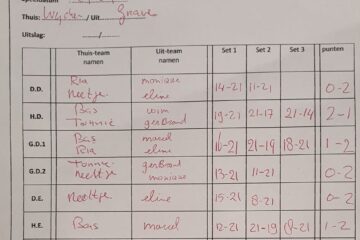 Thuis: Wychen / Uit: Grave
Uitslag: /
Thuis-team namen Uit-team namen Set 1 Set 2 Set 3 punten
D.D. Ria monique 14-21 11-21 0-2
Neeltje eline
H.D. Bas wim 19-21 21-17 21-14 2-1
Tonnie gerBrand
G.D.1 Bas marcel 16-21 21-19 18-21 1-2
Ria eline
G.D.2 Tonnie gerBrand 13-21 11-21 0-2
neeltje monique
D.E. Neeltje eline 15-21 8-21 0-2
H.E. Bas marcel 12-21 21-19 18-21 1-2